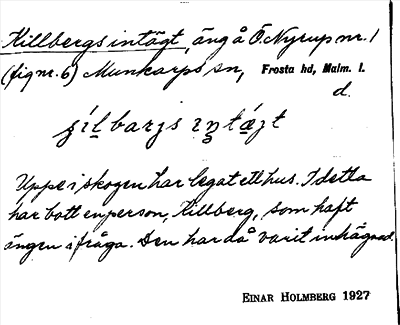 Killbergs intägt, äng å Ö. Nyrup nr. 1
(fig nr. 6) Munkarps sn, Frosta hd, Malm. l.
d.
Uppe i skogen har legat ett hus. I detta
har bott en person, Killberg, som haft
ängen i fråga. Den har då varit inhägnad.
EINAR HOLMBERG 1927